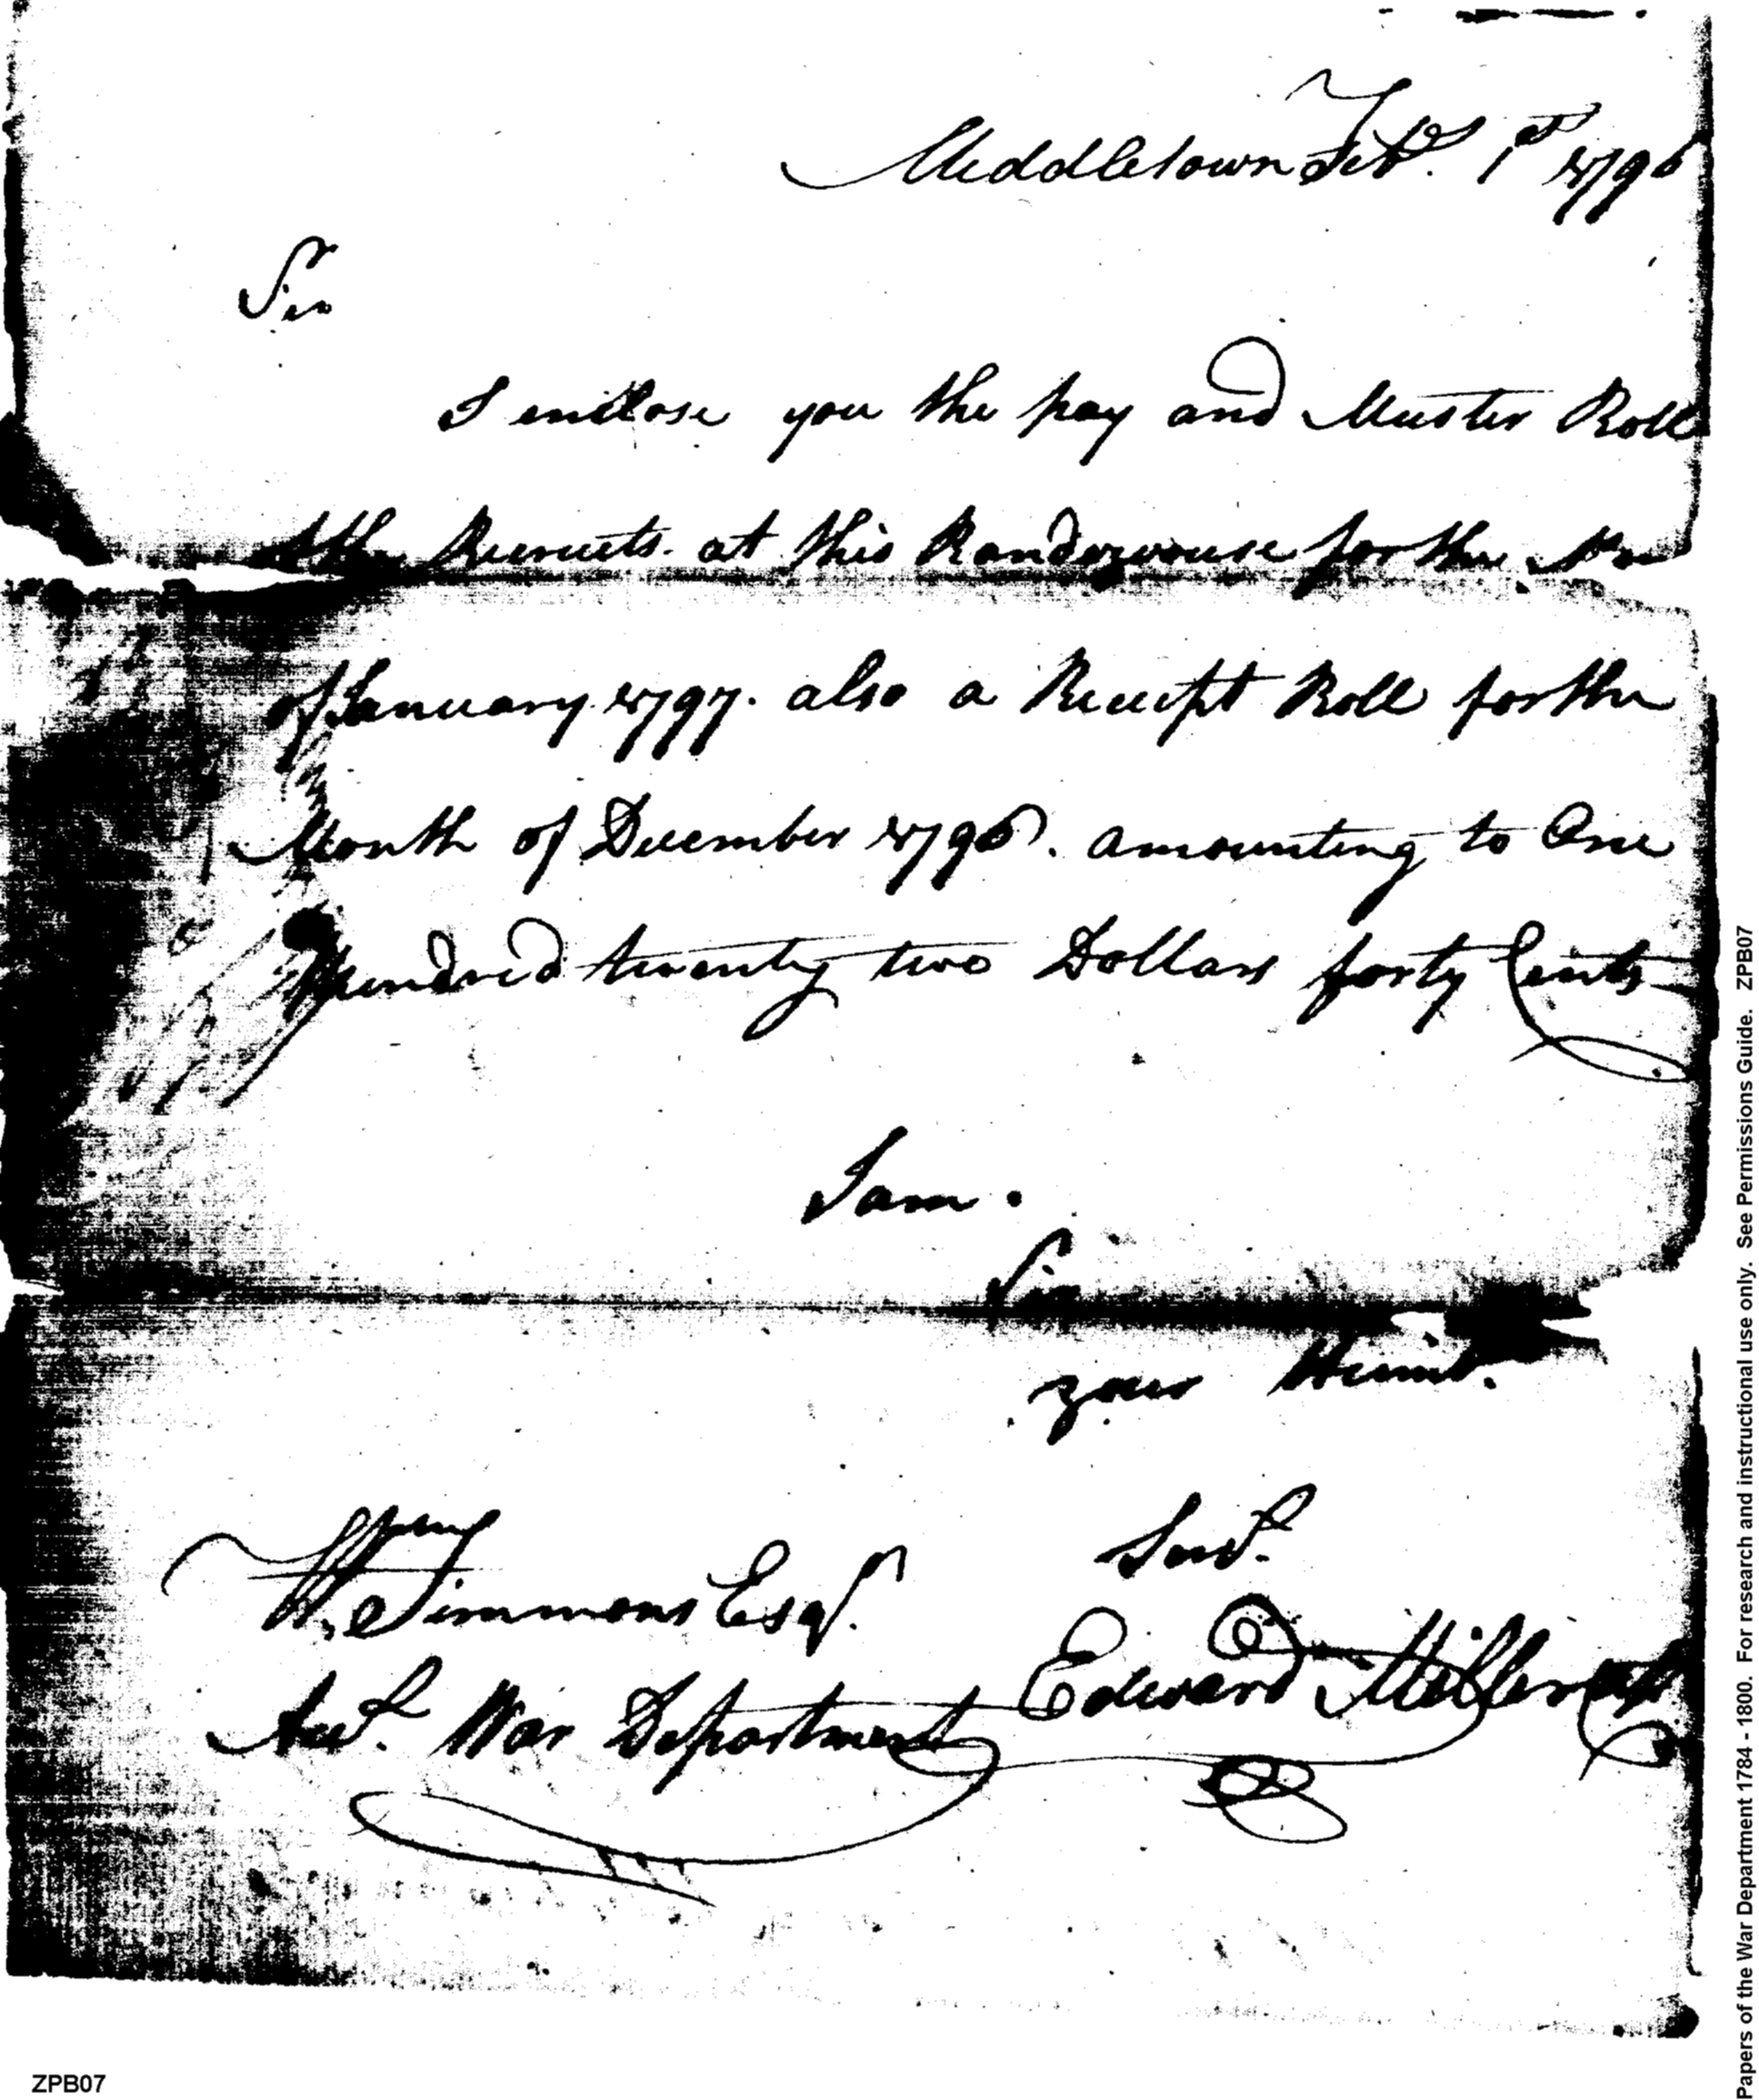 Middletown Feb. 1st 1796
Sir
I enclose you the pay and Muster Roll
the Recruits. at this Randezvouse for the Mo
of January 1797. also a Receipt Roll for the
Month of December 1796. amounting to One
Hundred twenty two Dollars forty Cents
I am.
Sir
your Huml.
Servt.
Wm Simmons Esqr.
Acct. War Department
Edward Miller Capt
ZPB07
Papers of the War Department 1784 - 1800. For research and instructional use only. See Permissions Guide. ZPB07